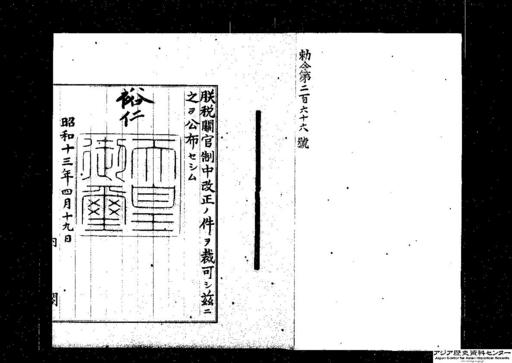 勅令第二百六十六號
朕税關官制中改正ノ件ヲ裁可シ茲ニ
之ヲ公布セシム
裕仁
天皇御璽
昭和十三年四月十九日
内閣
アジア歴史資料センター
Japan Center for Asian Historical Records